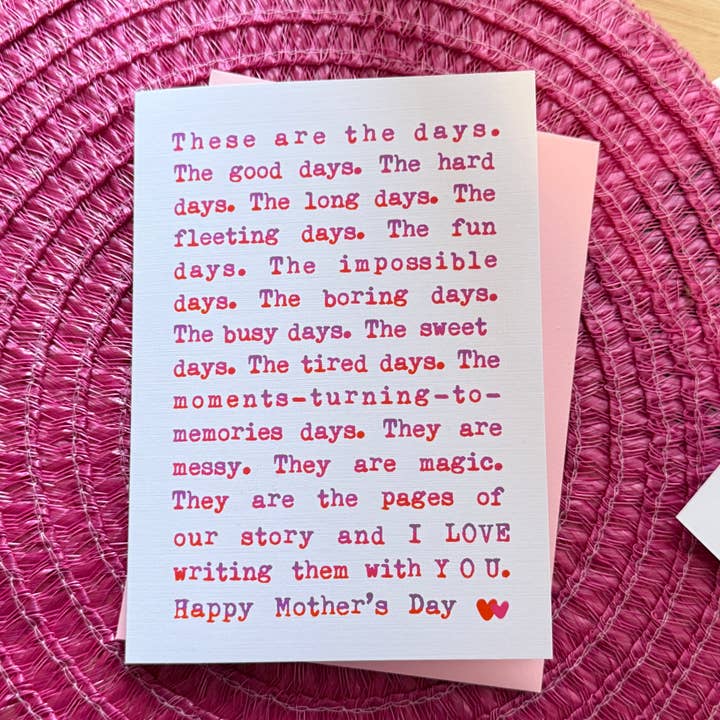 These are the days.
The good days. The hard
days. The long days. The
fleeting days. The fun
days. The impossible
days. The boring days.
The busy days. The sweet
days. The tired days. The
moments-turning-to-
memories days. They are
messy. They are magic.
They are the pages of
our story and I LOVE
writing them with Y O U.
Happy Mother's Day